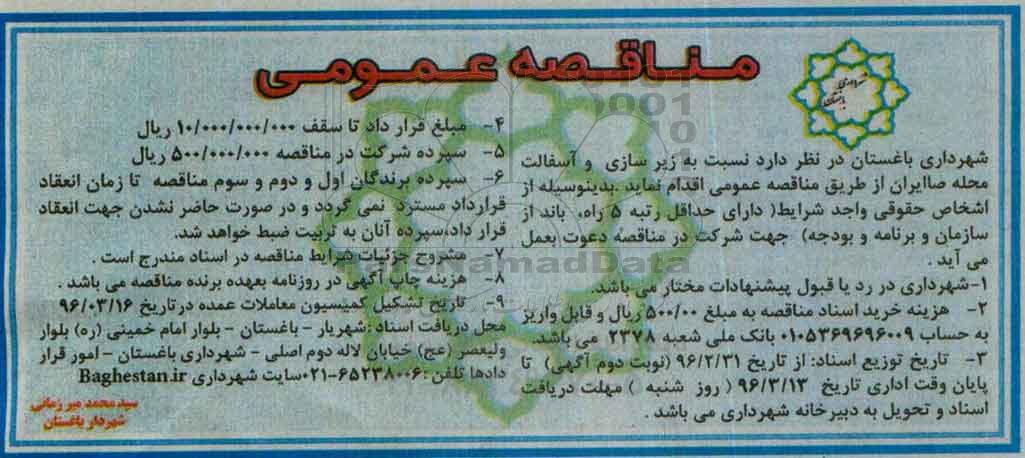 مناقصه عمومی
شهرداری باغستان
شهرداری باغستان در نظر دارد نسبت به زیر سازی و آسفالت
محله صاایران از طریق مناقصه عمومی اقدام نماید .بدینوسیله از
اشخاص حقوقی واجد شرایط( دارای حداقل رتبه ۵ راه، باند از
سازمان و برنامه و بودجه) جهت شرکت در مناقصه دعوت بعمل
می آید .
۱-شهرداری در رد یا قبول پیشنهادات مختار می باشد.
۲- هزینه خرید اسناد مناقصه به مبلغ ۵۰۰/۰۰ ریال و قابل واریز
به حساب ۰۱۰۵۳۶۹۶۹۶۰۰۹ بانک ملی شعبه ۲۳۷۸ می باشد.
۳- تاریخ توزیع اسناد: از تاریخ ۹۶/۲/۳۱ (نوبت دوم آگهی) تا
پایان وقت اداری تاریخ ۹۶/۳/۱۳ ( روز شنبه ) مهلت دریافت
اسناد و تحویل به دبیرخانه شهرداری می باشد .
۴- مبلغ قرار داد تا سقف ۱۰/۰۰۰/۰۰۰/۰۰۰ ریال
۵- سپرده شرکت در مناقصه ۵۰۰/۰۰۰/۰۰۰ ریال
۶- سپرده برندگان اول و دوم و سوم مناقصه تا زمان انعقاد
قرارداد مسترد نمی گردد و در صورت حاضر نشدن جهت انعقاد
قرار داد،سپرده آنان به تربیت ضبط خواهد شد.
۷- مشروح جزئیات شرایط مناقصه در اسناد مندرج است .
۸- هزینه چاپ آگهی در روزنامه بعهده برنده مناقصه می باشد .
۹- تاریخ تشکیل کمیسیون معاملات عمده درتاریخ ۹۶/۰۳/۱۶
محل دریافت اسناد :شهریار - باغستان - بلوار امام خمینی (ره) بلوار
ولیعصر (عج) خیابان لاله دوم اصلی - شهرداری باغستان - امور قرار
دادها تلفن :۶۵۲۳۸۰۰۶-۰۲۱سایت شهرداری Baghestan.ir
سید محمد میرزمانی
شهردار باغستان